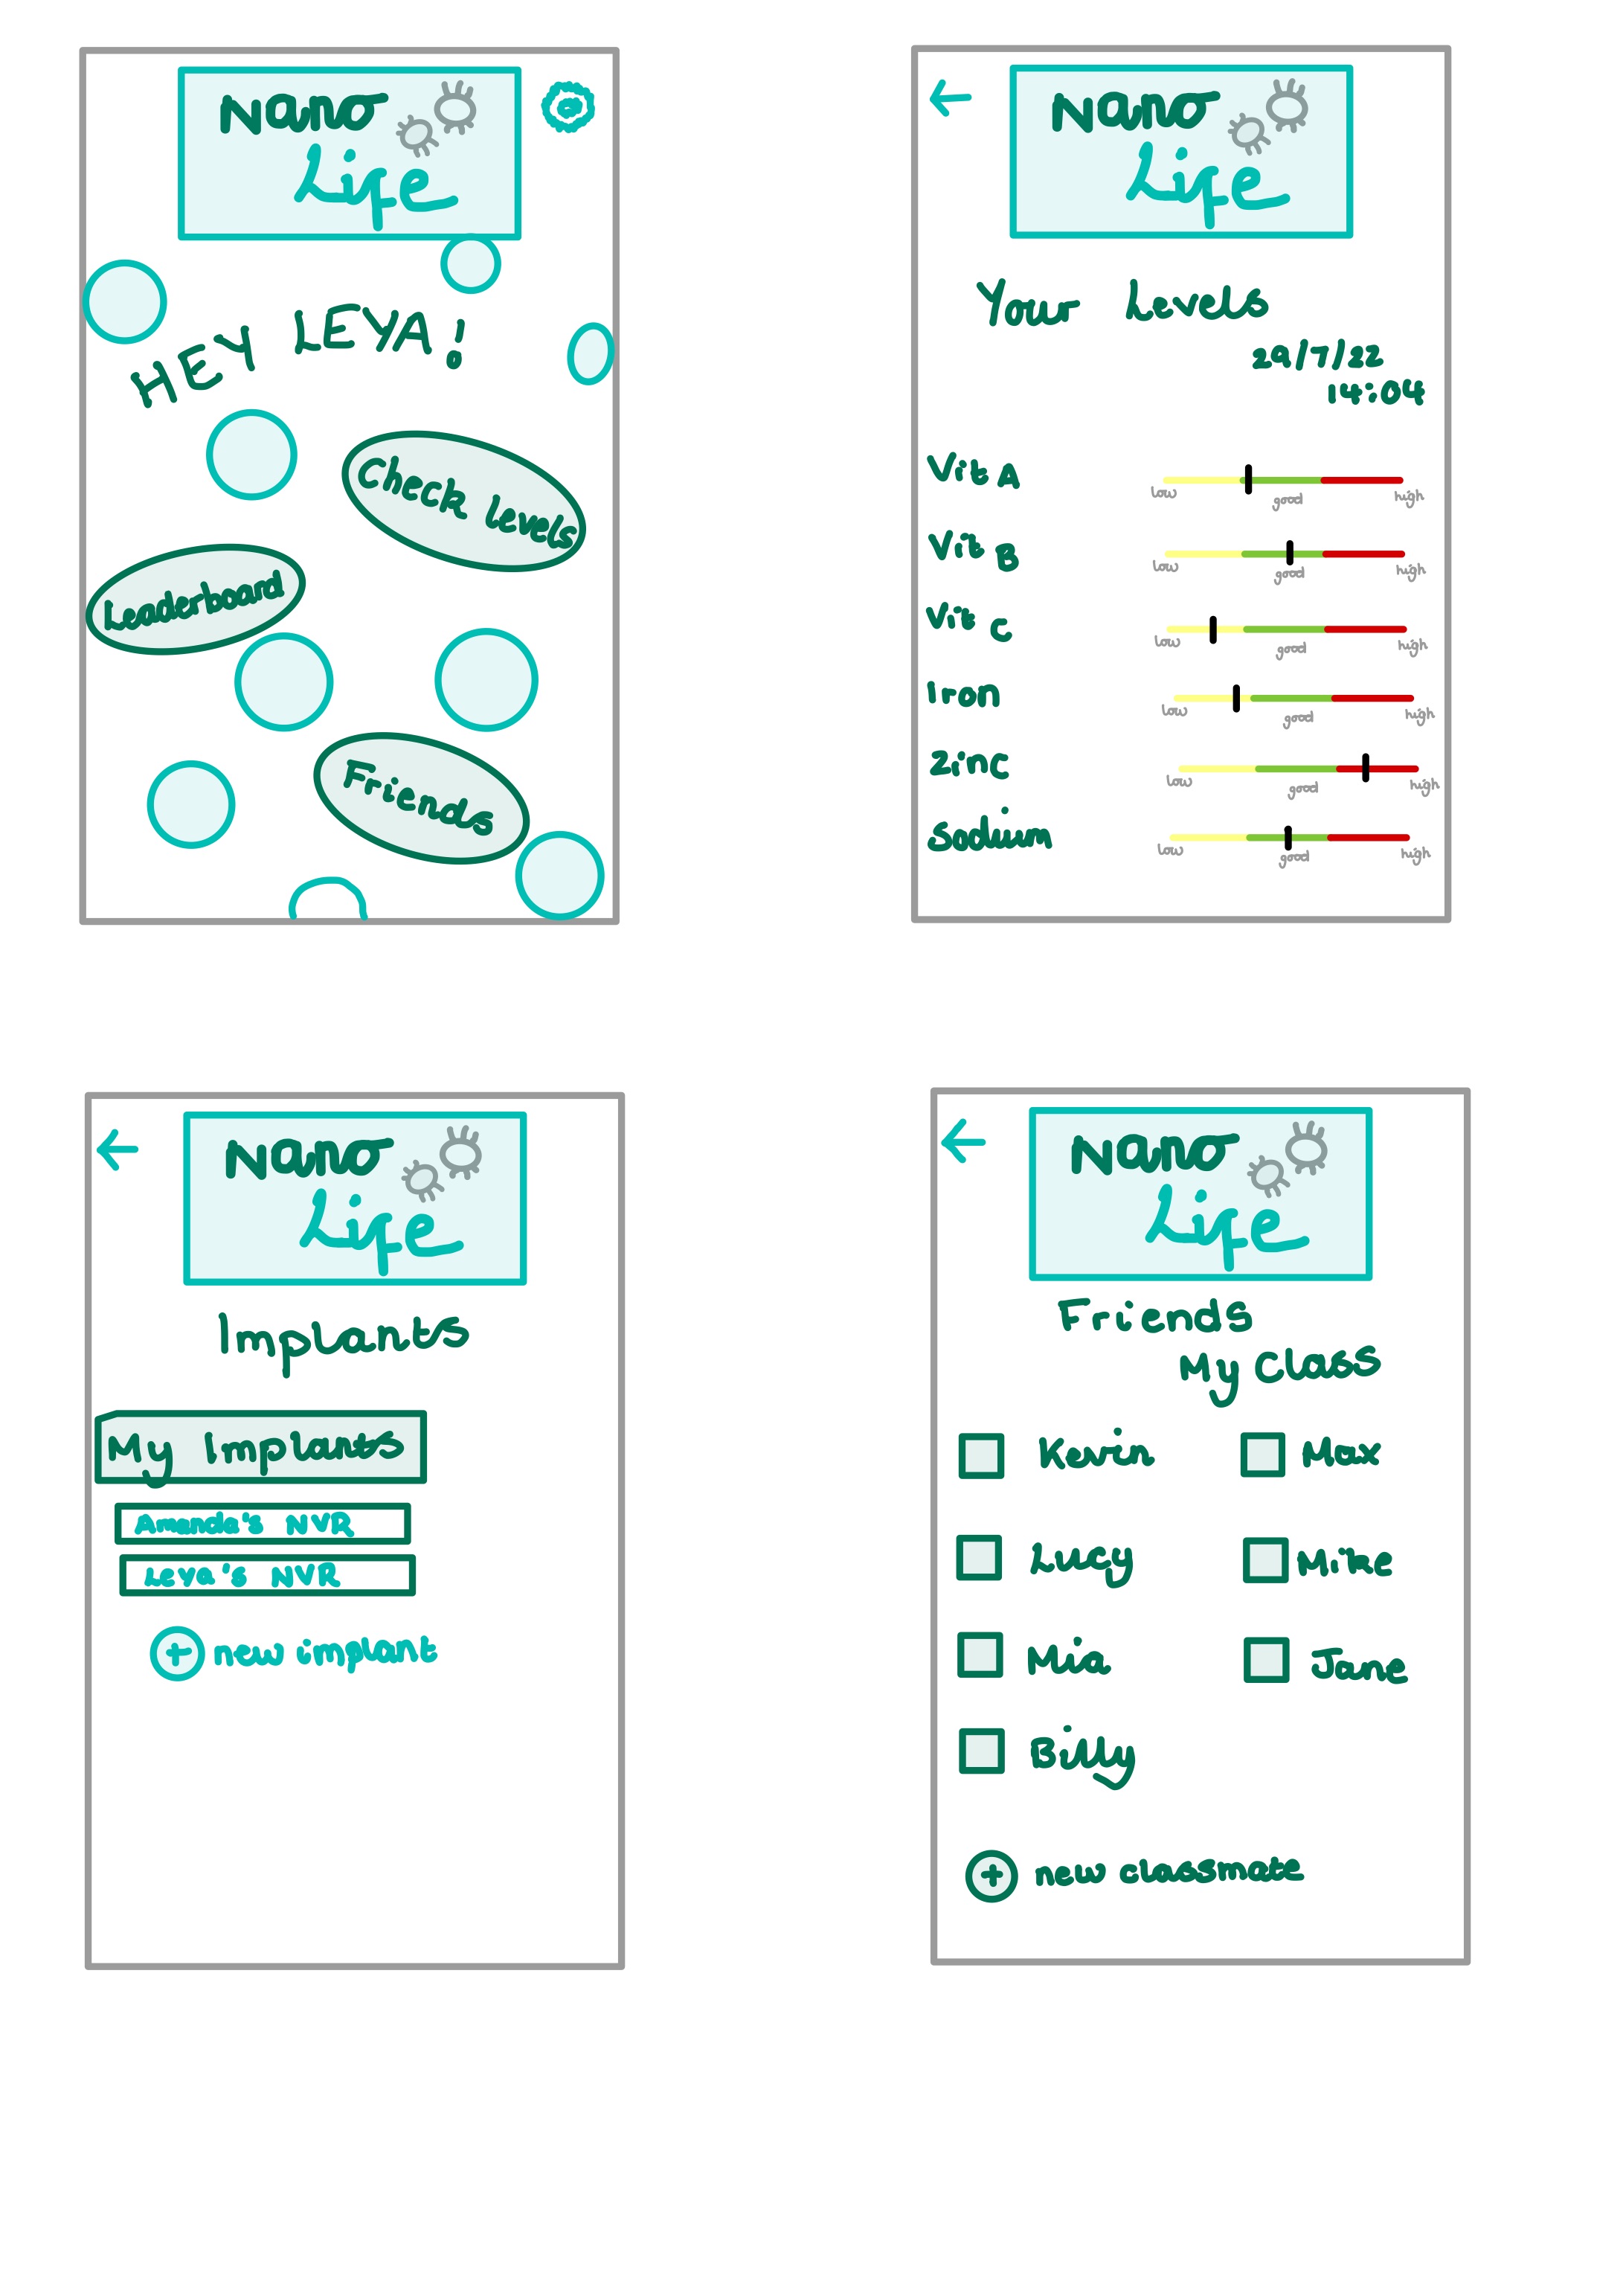 Nano
Life
HEY LEYA!
Check Levels
Leaderboard
Friends
Nano
Life
Your Levels
29/7/22
14:04
Vit A
low good high
Vit B
low good high
Vit C
low good high
Iron
low good high
Zinc
low good high
Sodium
low good high
Nano
Life
Implants
My Implants
Amanda's NVR
Leya's NVR
+ new implant
Nano
Life
Friends
My Class
Kevin Max
Lucy Mike
Mia Jane
Billy
+ new classmate